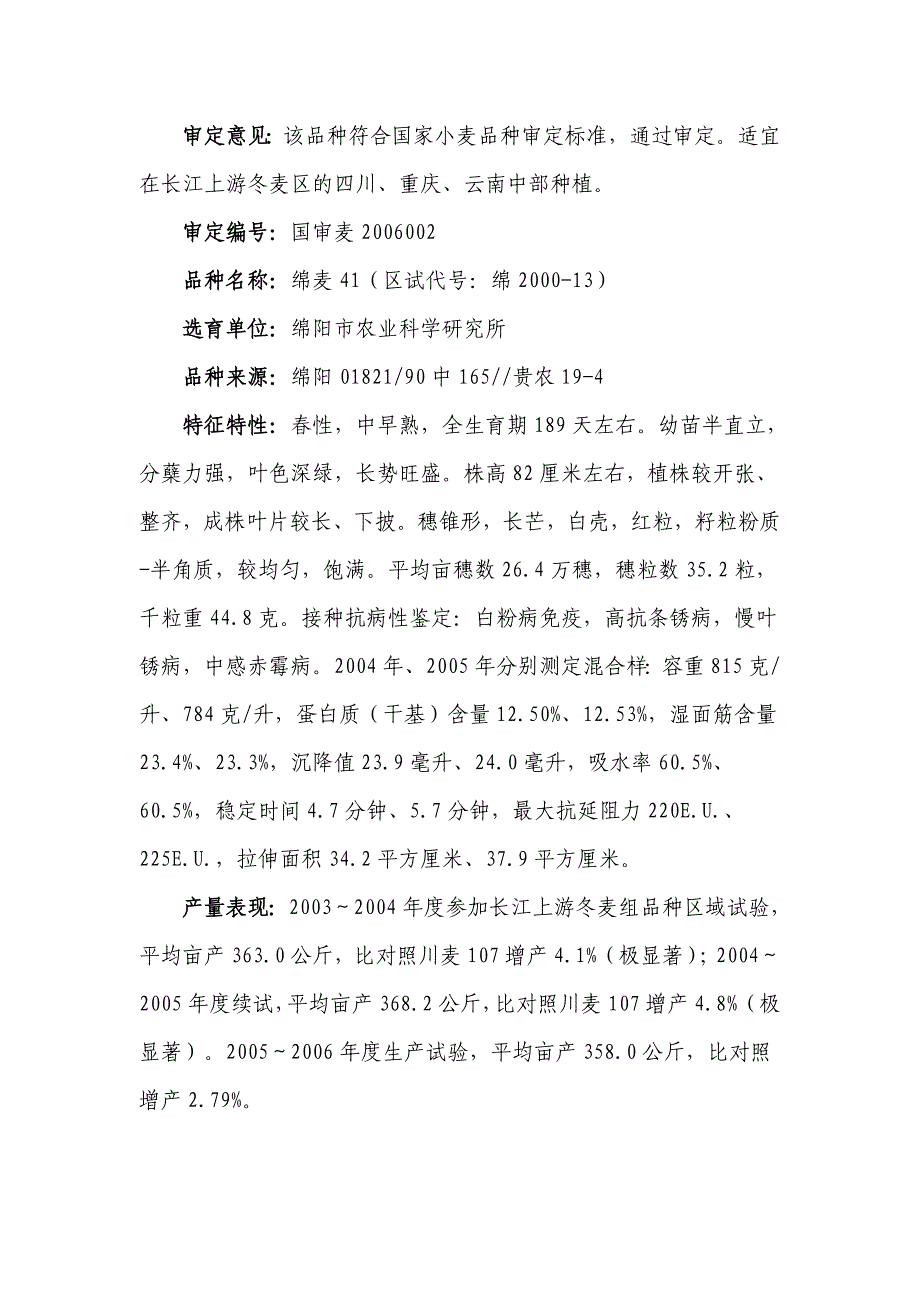 审定意见：该品种符合国家小麦品种审定标准，通过审定。适宜
在长江上游冬麦区的四川、重庆、云南中部种植。
审定编号：国审麦 2006002
品种名称：绵麦 41（区试代号：绵 2000-13）
选育单位：绵阳市农业科学研究所
品种来源：绵阳 01821/90 中 165//贵农 19-4
特征特性：春性，中早熟，全生育期 189 天左右。幼苗半直立，
分蘖力强，叶色深绿，长势旺盛。株高 82 厘米左右，植株较开张、
整齐，成株叶片较长、下披。穗锥形，长芒，白壳，红粒，籽粒粉质
-半角质，较均匀，饱满。平均亩穗数 26.4 万穗，穗粒数 35.2 粒，
千粒重 44.8 克。接种抗病性鉴定：白粉病免疫，高抗条锈病，慢叶
锈病，中感赤霉病。2004 年、2005 年分别测定混合样：容重 815 克/
升、784 克/升，蛋白质（干基）含量 12.50%、12.53%，湿面筋含量
23.4%、23.3%，沉降值 23.9 毫升、24.0 毫升，吸水率 60.5%、
60.5%，稳定时间 4.7 分钟、5.7 分钟，最大抗延阻力 220E.U.、
225E.U.，拉伸面积 34.2 平方厘米、37.9 平方厘米。
产量表现：2003～2004 年度参加长江上游冬麦组品种区域试验，
平均亩产 363.0 公斤，比对照川麦 107 增产 4.1%（极显著）；2004～
2005 年度续试，平均亩产 368.2 公斤，比对照川麦 107 增产 4.8%（极
显著）。2005～2006 年度生产试验，平均亩产 358.0 公斤，比对照
增产 2.79%。